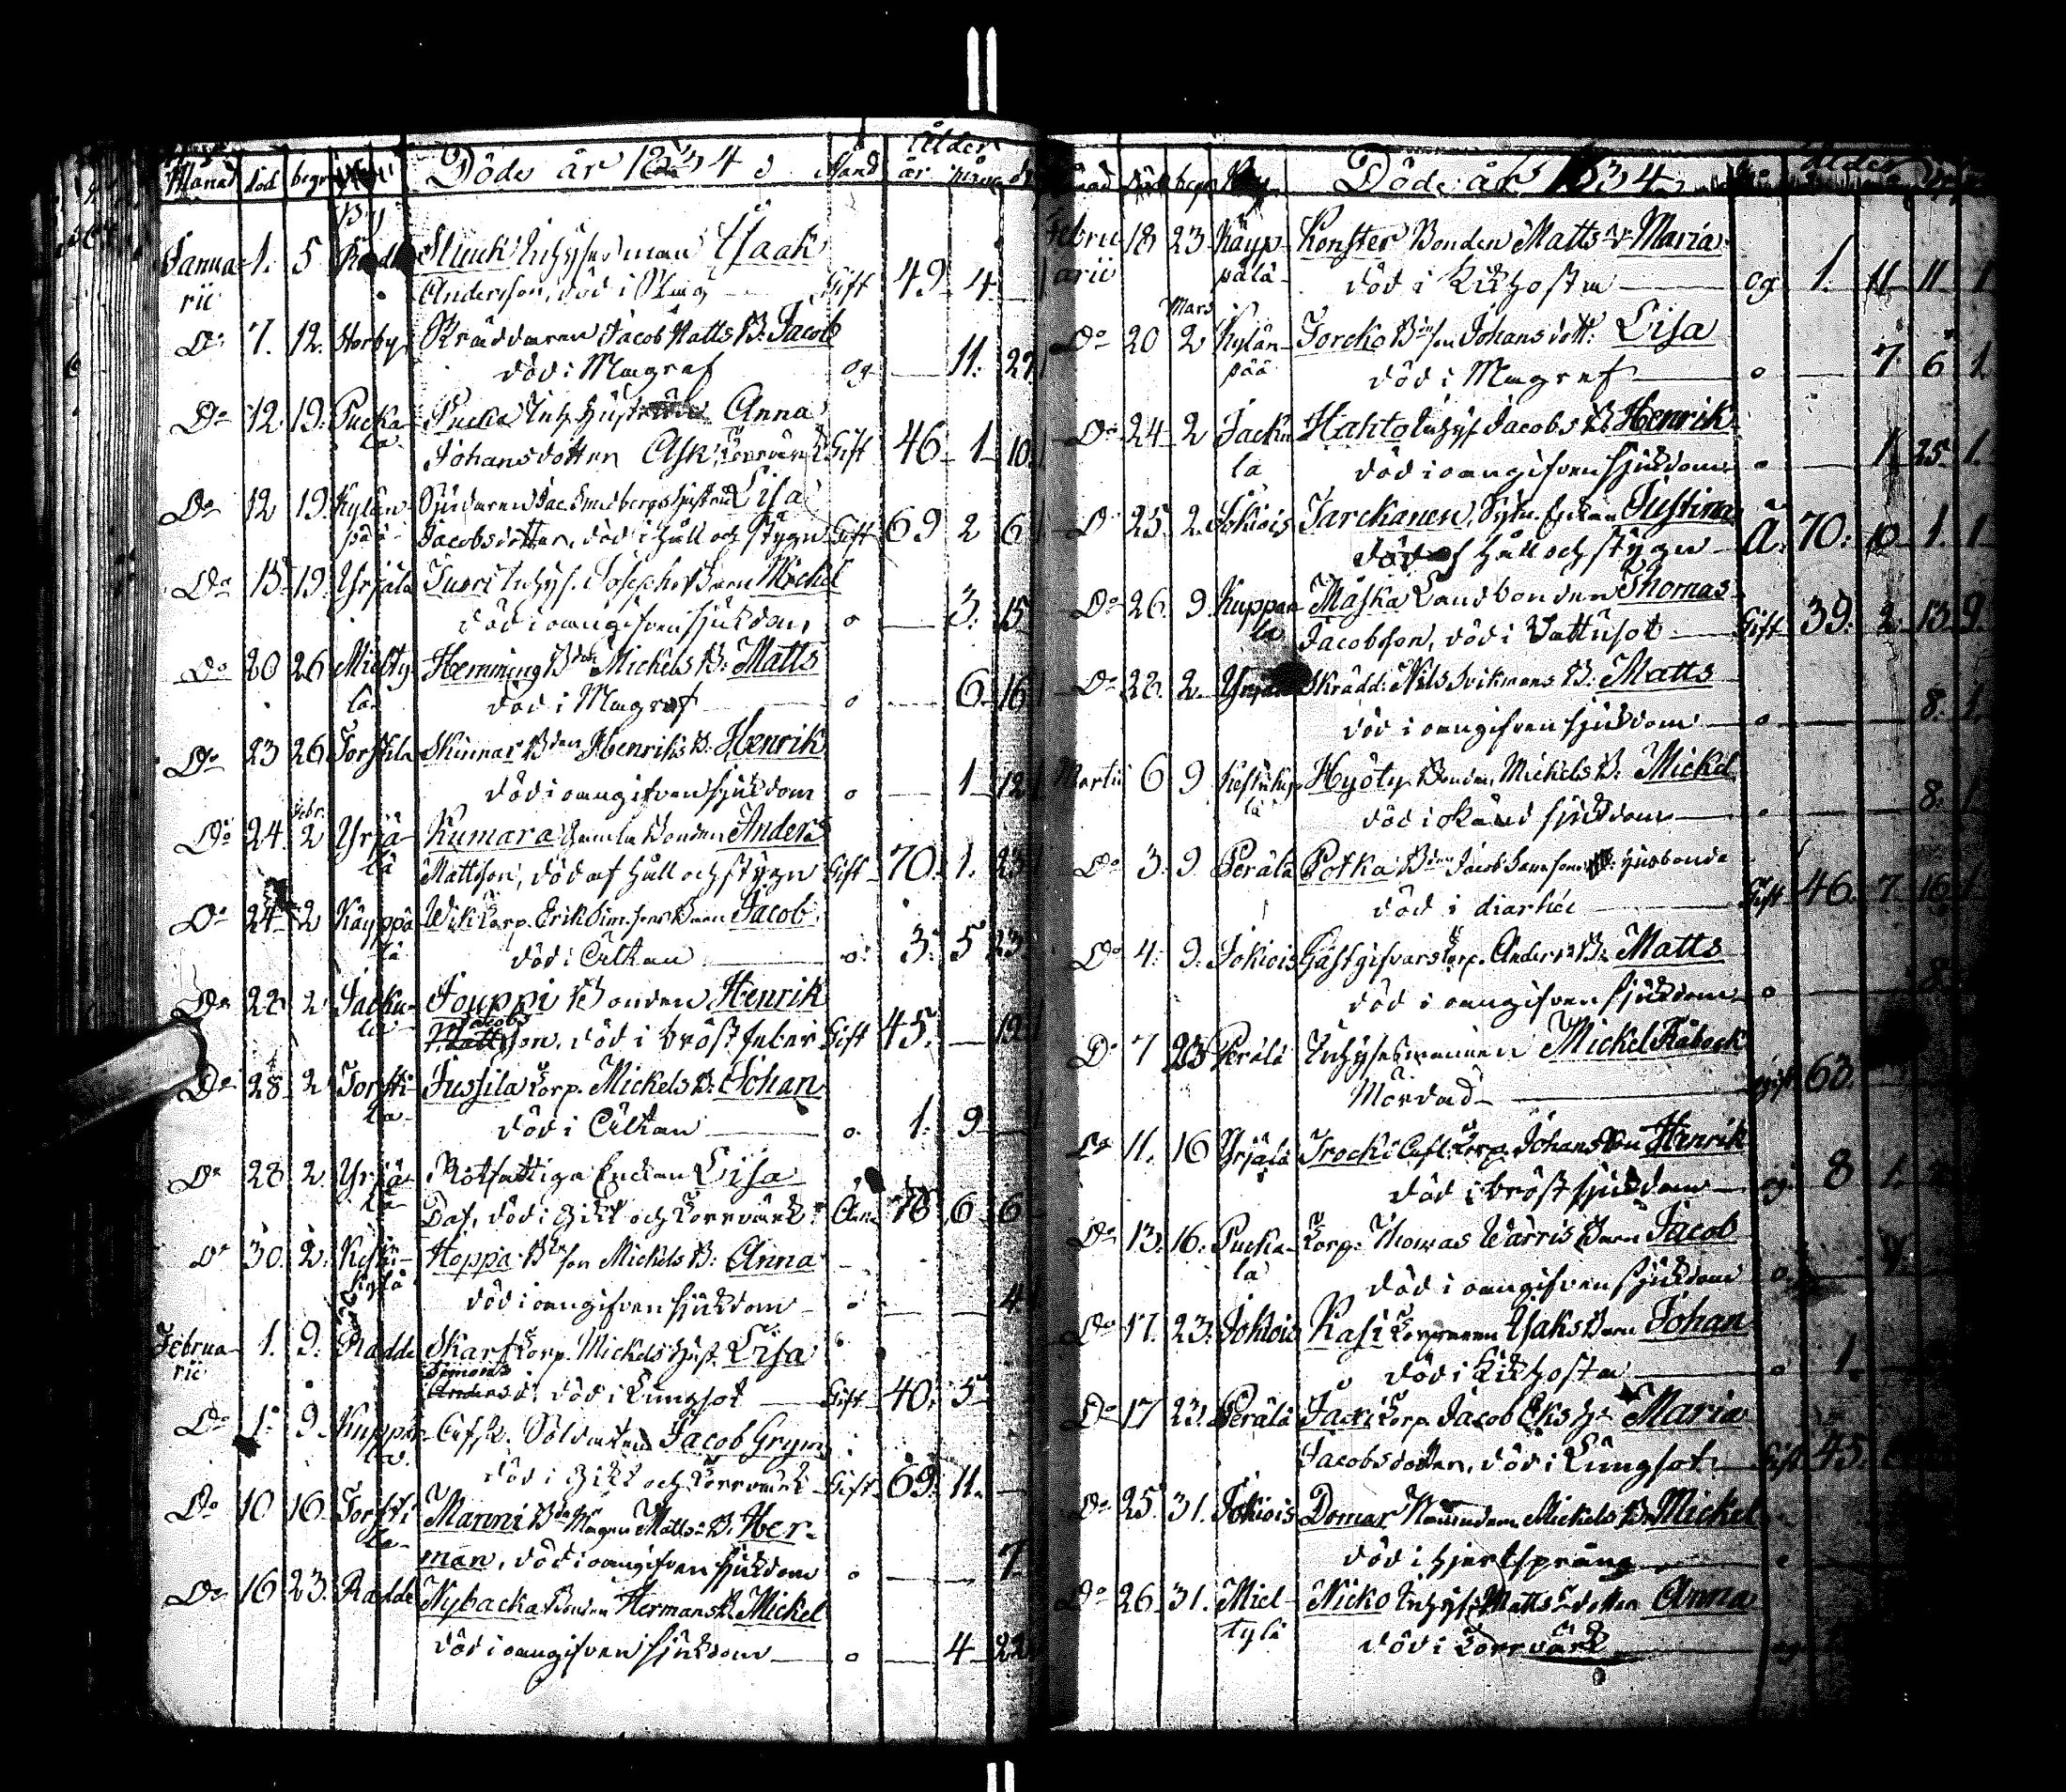 Månad död begr By Döde år 1834 Stånd Ålder år mån d
Janua- 1. 5 Inhysesman Isaak
rii Andersson, död i Gift 49 4
Do 7. 12. Horby Skräddaren Jacob Matts B: Jacob
död i Magref og 11. 27
Do 12 19. Pucka- Pucka Inh. Hustrun Anna
la Johansdotter Ask, Torrvärk Gift 46 1 10
Do 12 19. Kylän- Jac. hustru Lisa
pää Jacobsdotter, död i håll och stygn Gift 69 2 6
Do 15 19. Yrjälä Inhys. Josephs Barn Mickel
död i oangifven sjukdom o 3. 15
Do 20 26 Mielty- Hemming Bden Mickels B: Matts
lä död i Magref o 6 16
Do 23 26 Torstila Skinnar Bden Henriks B: Henrik
död i oangifven sjukdom o 1 12
Febr.
Do 24. 2 Yrjä- Kumara Gamla Bonden Anders
lä Mattsson, död af håll och stygn Gift 70. 1. 23
Do 24 2 Käyppä Wik Torp. Erik Simsons Barn Jacob
lä död i Ältan o. 3. 5 23.
Do 22 2 Jacku- Jouppi Bonden Henrik
la Jacobsson, död i bröstfeber Gift 45. 19
Do 28 2 Torsti- Jussila Torp. Mickels B: Johan
la död i Ältan o. 1. 9
Do 28 2 Yrjä- Rotfattiga Enkan Lisa
lä Dat, död i gikt och torrvärk 78 6 6
Do 30. 2. Keski- Hoppa Bdson Mickels B: Anna
kylä död i oangifven sjukdom o 4
Februa- 1. 9. Radde Skarf Torp. Mickels hust. Lisa
rii Simons d. död i Lungsot Gift 40. 5
Do 1. 9 Kuppa- Afsk. Soldaten Jacob Grym
la död i gikt och torrvärk Gift 69. 11.
Do 10 16. Torsti- Manni Bde Mågen Matts B. Her-
la man, död i oangifven sjukdom o 7
Do 16 23. Radde Nybacka Bonden Hermans B. Mickel
död i oangifven sjukdom o 4 22
Döde år 1834 Ålder
Febru- 18 23 Käyp- Konster Bonden Matts dr Maria
arii pälä död i Kikhosta og 1. 11 11 1
Mars
Do 20 2 Kylän- Jorcko Bdson Johans dott: Lisa
pää död i Magref o 7 6 1
Do 24 2 Jacku- Hahto Inhys Jacobs B. Henrik
la död i oangifven sjukdom o 1 25. 1.
Do 25 2. Jokiois Tarckanen, Sytn. Enkan Justina
död af håll och stygn Ä. 70. 10 1. 1
Do 26. 9. Kuppa- Maska Landbonden Thomas
la Jacobsson, död i Vattusot Gift 39. 2. 13 9.
Do 28. 2 Yrjälä Skrädd. Nils Svikmans B: Matts
död i oangifven sjukdom o 8. 1.
Martii 6 9 Keskiky- Hyöty Bonden Mickels B: Mickel
lä död i okänd sjukdom 8. 1
Do 3. 9 Perälä Potka Bden husbonde
död i diarhée Gift 46. 7 16 1
Do 4. 9. Jokiois Gästgifvars Torp. Anders B: Matts
död i oangifven sjukdom o 8
Do 7 23 Perälä Inhysesmannen Mickel Råback
Mördad gift 63.
Do 11. 16 Yrjälä Torp. Johans Barn Henrik
död i bröstsjukdom og 8 1.
Do 13. 16. Pucka- Torp. Thomas Warris Barn Jacob
la död i oangifven sjukdom o
Do 17. 23. Jokiois Kasi Torparen Isaks Barn Johan
död i Kikhosta o 1.
Do 17 23. Perälä Jacki Torp. Jacob Eks h. Maria
Jacobsdotter, död i Lungsot. Gift 45
Do 25. 31. Jokiois Domar Mickels B. Mickel
död i hjertsprång
Do 26. 31. Miel- Nicko Inhys. Matts dotter Anna
tylä död i torrvärk og